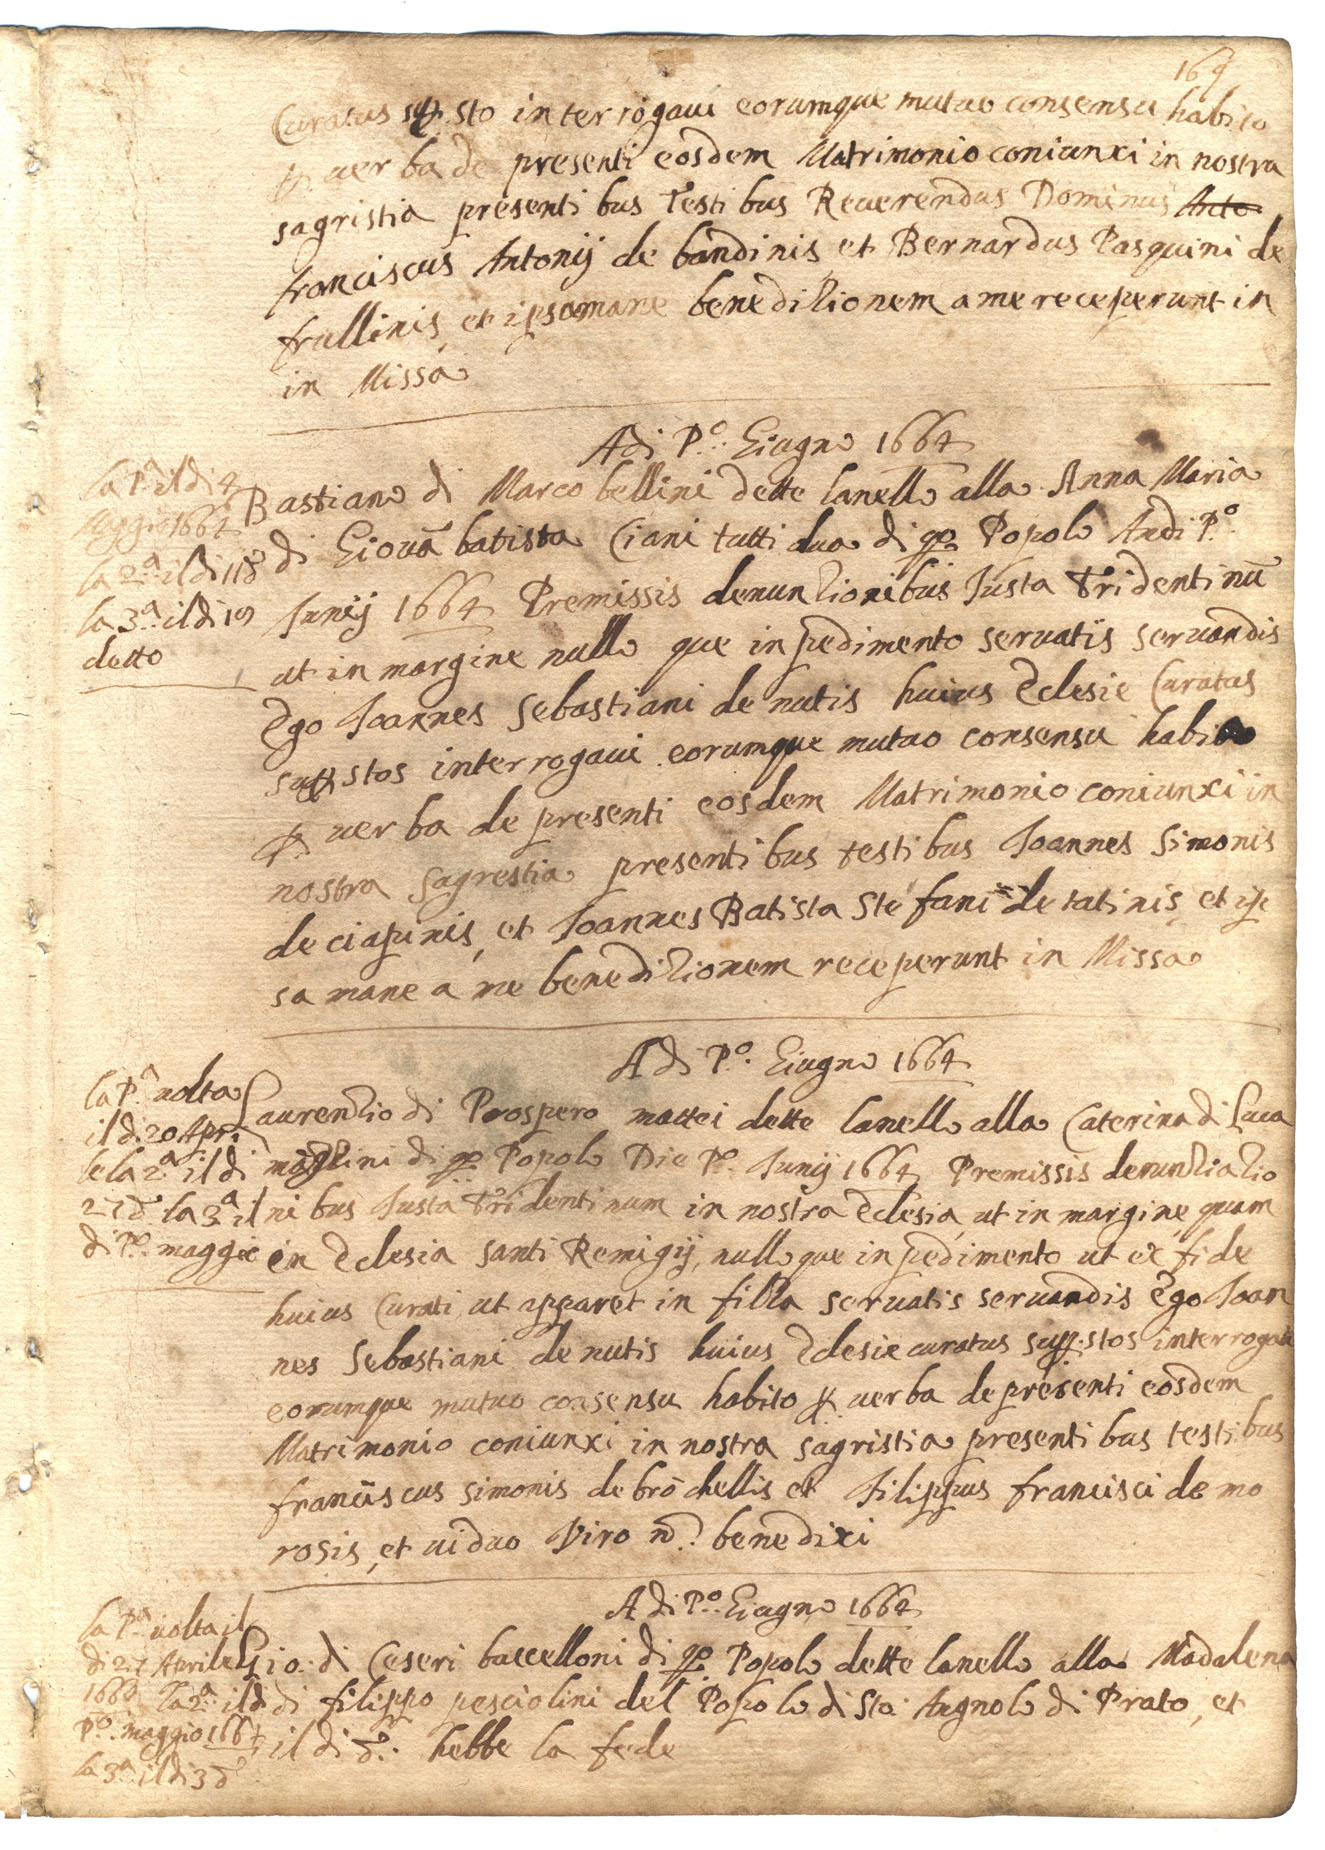 164
Curatus supsto interrogaui eorumque mutuo consensu habito
p uerba de presenti eosdem Matrimonio coniunxi in nostra
sagristia presentibus Testibus Reuerendus Dominus Anto
franciscus Antonij de bandinis et Bernardus Pasquini de
frullinis, et ipsamane beneditionem a me receperunt in
in Missa
Adi P.o Giugno 1664
la P.a il di 4
Maggio 1664
la 2.a il di 11 d.o
la 3.a il di 19
detto
Bastiano di Marco bellini dette lanello alla Anna Maria
di Giouā batista Ciani tutti dua di qo Popolo Audi P.o
Iunij 1664 Premissis denuntionibus Iusta Tridentinū
ut in margine nullo que inpedimento seruatis seruandis
Ego Ioannes Sebastiani de nutis huius Eclesie Curatus
supstos interrogaui eorumque mutuo consensu habito
p uerba de presenti eosdem Matrimonio coniunxi in
nostra sagrestia presentibus testibus Ioannes Simonis
de ciapinis, et Ioannes Batista Stefani de tatinis, et ip
sa mane a me beneditionem receperunt in Missa
A di P.o Giugno 1664
la P.a uolta
il di 20 Apri
le la 2.a il di
27 d.o la 3.a il
di P.o maggio
Laurentio di Prospero mattei dette lanello alla Caterina di Luca
di qo Popolo Die P.o Iunij 1664 Premissis denuntiatio
nibus Iusta Tridentinum in nostra Eclesia, ut in margine, quam
in Eclesia santi Remigij, nulloque inpedimento ut ex fide
huius Curati ut apparet in filza seruatis seruandis Ego Ioan
nes Sebastiani de nutis huius Eclesie curatus sup.stos interrogaui
eorumque mutuo consensu habito p uerba de presenti eosdem
Matrimonio coniunxi in nostra sagristia presentibus testibus
franciscus simonis de brōchellis et Filippus francisci de mo
rosis, et uiduo Viro nō benedixi
A di P.o Giugno 1664
la P.a uolta il
di 27 Aprile
1664 la 2.a il di
P.o maggio 1664
la 3.a il di 3 d.o
Gio: di Ceseri baccelloni di qo Popolo dette lanello alla Madalena
di filippo pesciolini del Popolo di Sto Angnolo di Prato, et
il di d.o hebbe la fede